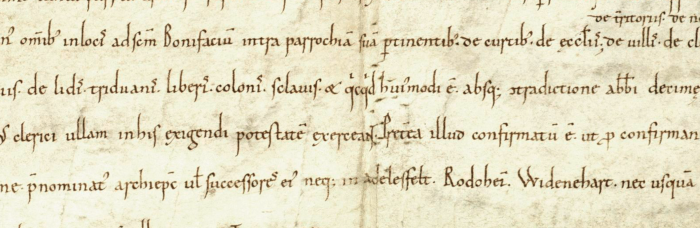 de t̄ritoriis. de
om̄ib; in locı̄ ad sc̄m Bonifaciū intra parrochiā suā ꝑtinentib;. de curtib;. de ecc̄liı̄s, de villı̄s. de
de lidı̄s. triduanı̄s. liberı̄s. colonı̄s. sclavis. & qı̇cq̇d h̄uı̇smodi ē. absq; ↄtradictione abb̄i decime
clerici ullam in his exigendi potestatē exerceant. Pret̄ea illud confirmatū ē. ut ꝑ confirman
p̄nominat᷒ archiep̄c ul̄ successoreˢ eı᷒ neq; in adelesfelt. Rodohei. Widenehart. nec usquā